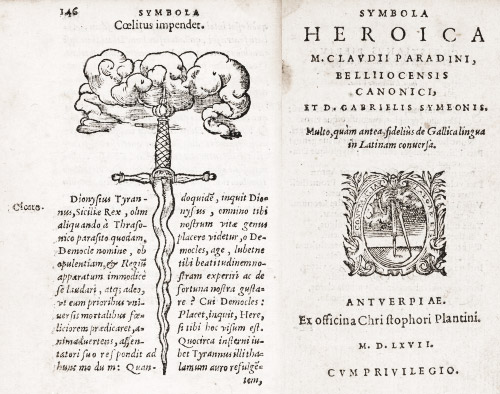 146 SYMBOLA
Cœlitus impendet.
Cicero.
Dionysius Tyran-
nus, Siciliæ Rex, olim
aliquando à Thraso-
nico parasito quodam,
Democle nomine, ob
opulentiam, & Regiũ
apparatum immodicè
se laudari, atq; adeo,
vt eum prioribus vni-
uersis mortalibus fœ-
liciorem prædicaret, a-
nimaduertens, assen-
tatori suo respondit ad
hunc modum: Quan-
doquidẽ, inquit Dio-
nysius, omnino tibi
nostrum vitæ genus
placere videtur, o De-
mocles, age, lubetne
tibi beatitudinem no-
stram experiri ac de
fortuna nostra gusta-
re? Cui Democles:
Placet, inquit, Here,
si tibi hoc visum est.
Quocirca insterni iu-
bet Tyrannus illi tha-
lamum auro refulgẽ-
tem,
SYMBOLA
HEROICA
M. CLAVDII PARADINI,
BELLIIOCENSIS
CANONICI,
ET D. GABRIELIS SYMEONIS.
Multo, quàm antea, fideliùs de Gallica lingua
in Latinam conuersa.
ANTVERPIAE.
Ex officina Christophori Plantini.
M. D. LXVII.
CVM PRIVILEGIO.